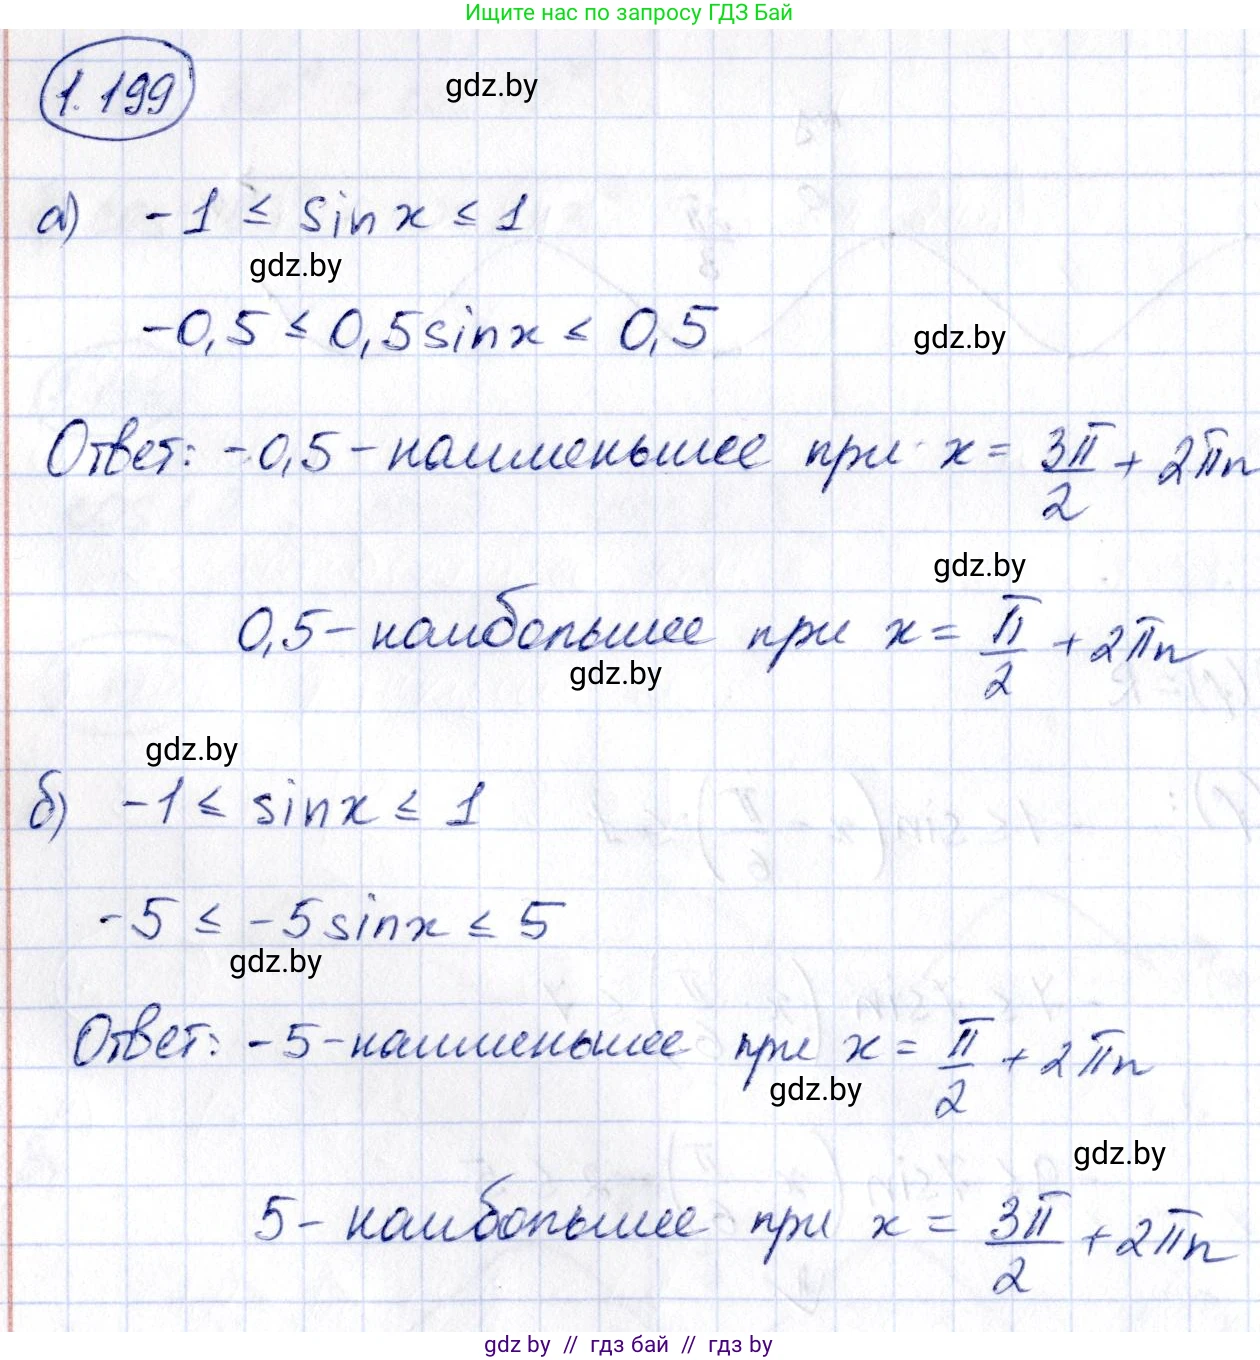 Ищите нас по запросу ГДЗ Бай
1.199
gdz.by
а) -1 ≤ sin x ≤ 1
gdz.by
-0,5 ≤ 0,5 sin x ≤ 0,5
gdz.by
Ответ: -0,5 - наименьшее при x = 3π/2 + 2πn
gdz.by
0,5 - наибольшее при x = π/2 + 2πn
gdz.by
gdz.by
б) -1 ≤ sin x ≤ 1
-5 ≤ -5 sin x ≤ 5
gdz.by
Ответ: -5 - наименьшее при x = π/2 + 2πn
gdz.by
gdz.by
5 - наибольшее при x = 3π/2 + 2πn
gdz.by // гдз бай // гдз by